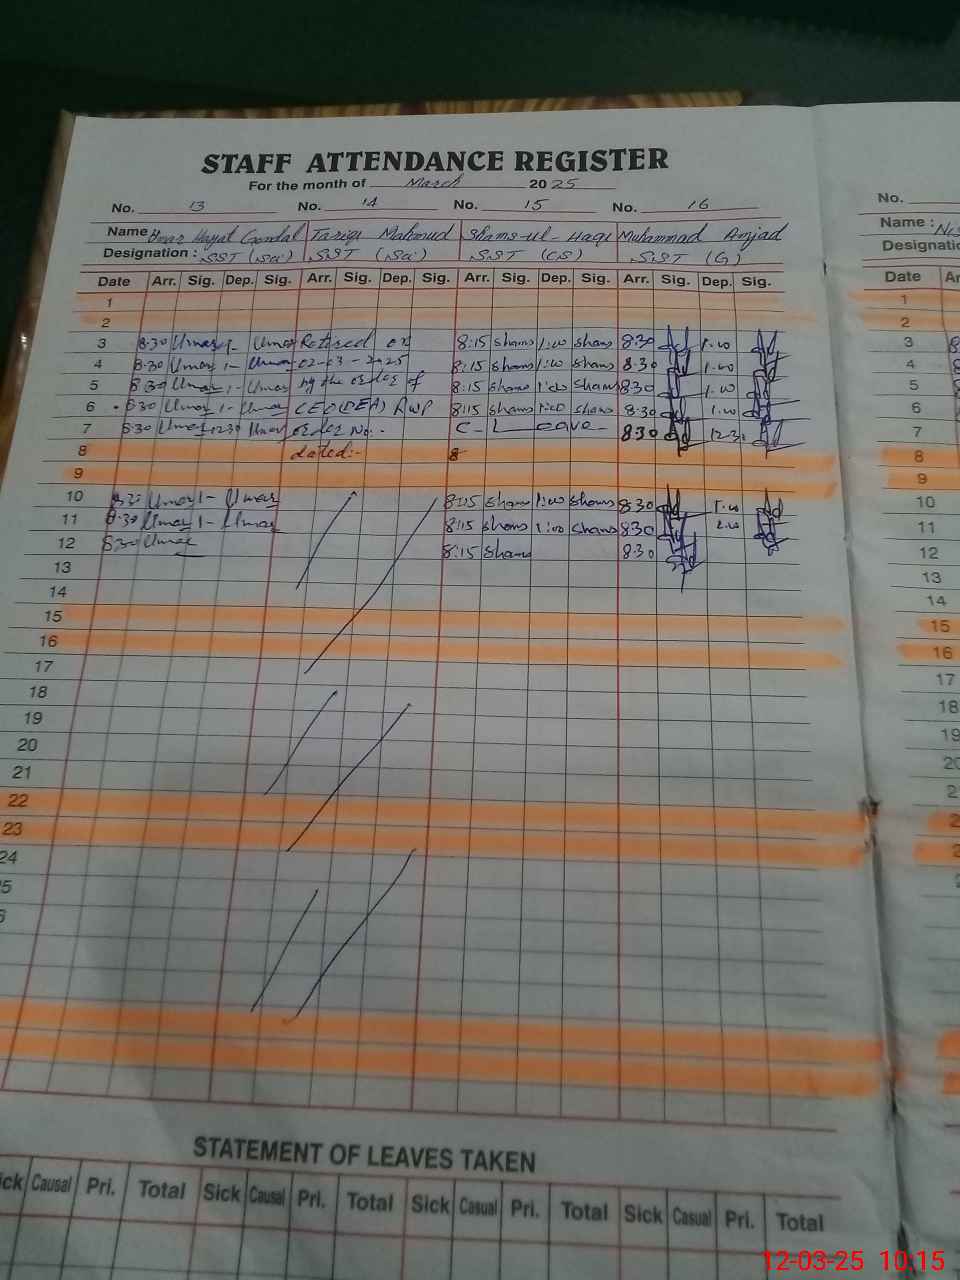 STAFF ATTENDANCE REGISTER
For the month of March 2025
No. 13 No. 14 No. 15 No. 16 No.
Name Umar Hayat Gondal Tariq Mahmud Shams-ul-Haq Muhammad Amjad Name :
Designation : SST (Sci) SST (Sci) SST (CS) SST (G) Designatio
Date Arr. Sig. Dep. Sig. Arr. Sig. Dep. Sig. Arr. Sig. Dep. Sig. Arr. Sig. Dep. Sig. Date Ar
1 1
2 2
3 8.30 Umar 1- Umar Retired on 8:15 shams 1:00 shams 8:30 1.00 3
4 8.30 Umar 1- Umar 02-03-2025 8:15 shams 1:00 shams 8.30 1.00 4
5 8.30 Umar 1- Umar by the order of 8:15 shams 1:00 shams 8.30 1.00 5
6 8.30 Umar 1- Umar CEO(DEA) RWP 8:15 shams 1:00 shams 8.30 1.00 6
7 8.30 Umar 1230 Umar order No:- C- Leave- 8.30 12.30 7
8 dated:- 8 8
9 9
10 8.30 Umar 1- Umar 8:15 shams 1:00 shams 8.30 1.00 10
11 8.30 Umar 1- Umar 8:15 shams 1:00 shams 8.30 11
12 8.30 Umar 8:15 shams 8.30 12
13 13
14 14
15 15
16 16
17 17
18 18
19 19
20 20
21 2
22 2
23 2
24 2
5
6
STATEMENT OF LEAVES TAKEN
ick Causal Pri. Total Sick Causal Pri. Total Sick Casual Pri. Total Sick Casual Pri. Total
12-03-25 10:15